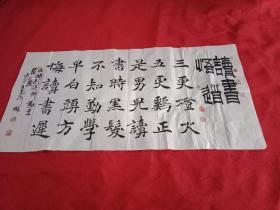 讀書
悟道
三更燈火
五更鷄正
是男兒讀
書時黑髮
不知勤學
早白頭方
悔讀書遲